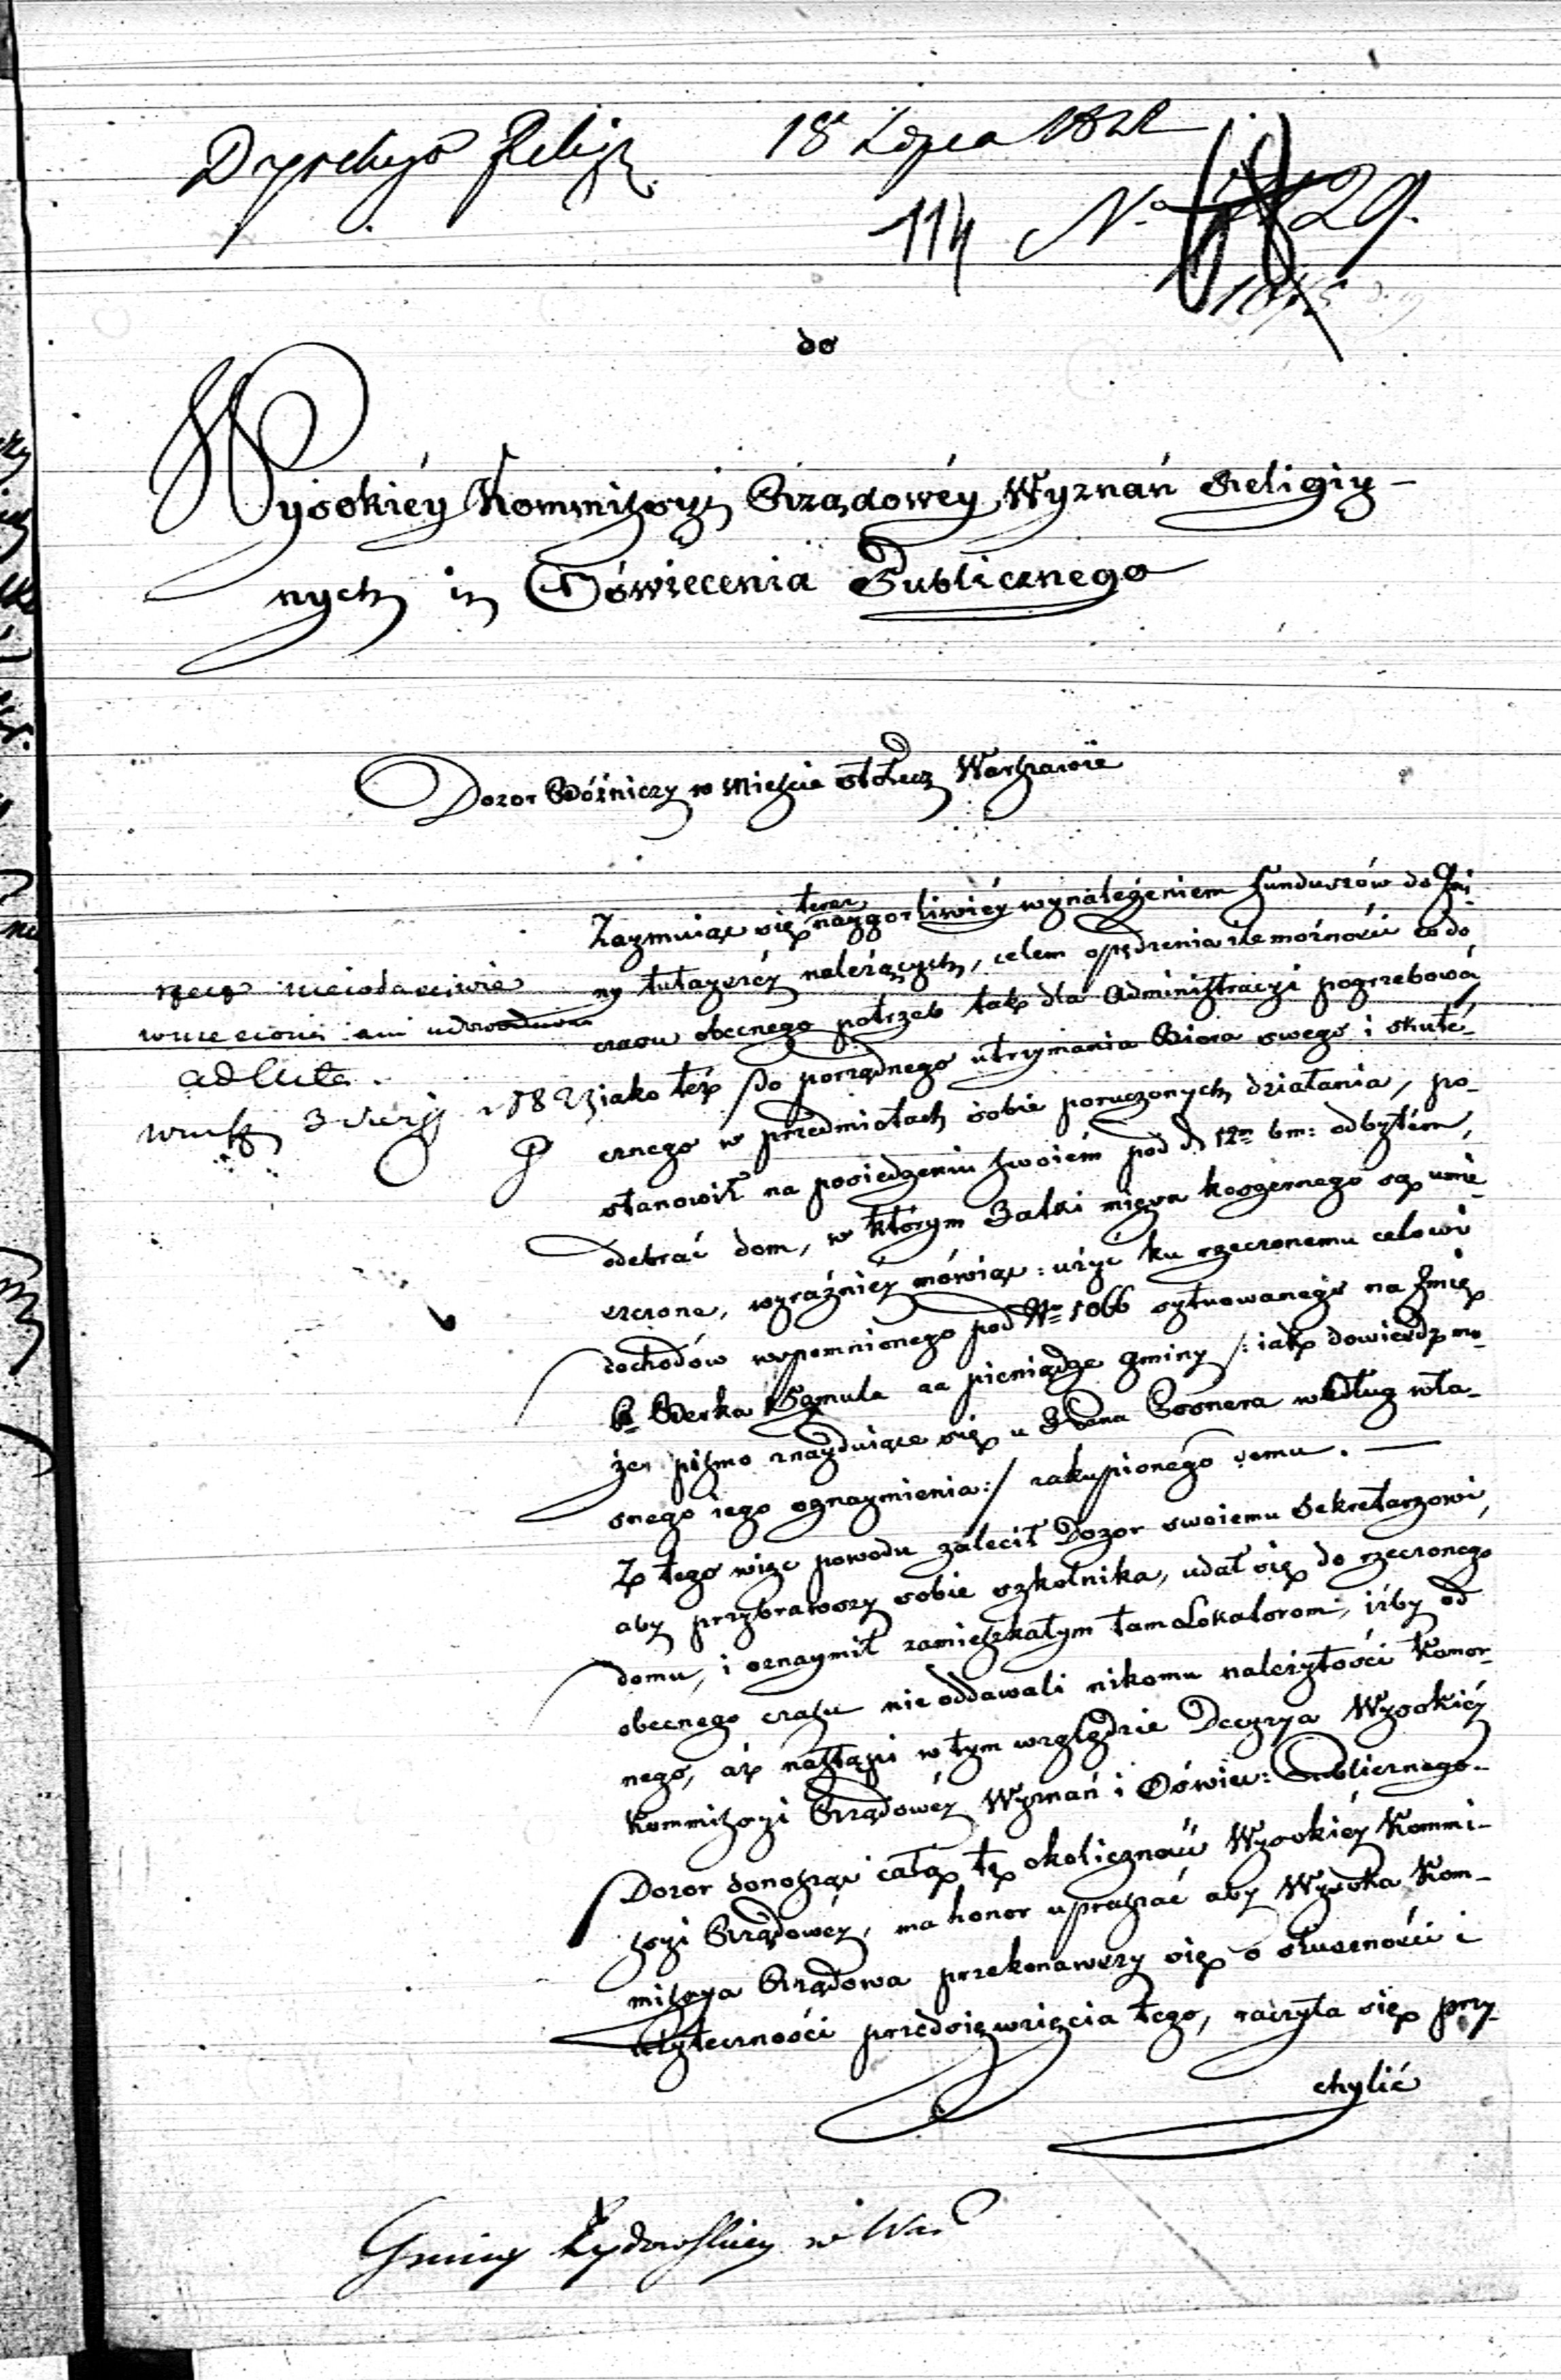 18 Lipca 1822
114 No 29.
do
Wysokiéy Kommissyi Rządowéy Wyznań Religiy-
nych i Oświecenia Publicznego
Dozor Bóźniczy w Mieście stołecz Warszawie
Zaymuiąc się teraz naygorliwiéy wynalezeniem funduszów do Gmi-
ny tutayszéy należących, celem opędzenia ile możności co do
czasu obecnego potrzeb tak dla Administracyi pogrzebowéy
iako też do porządnego utrzymania Biora swego i skute-
cznego w przedmiotach sobie poruczonych działania, po-
stanowił na posiedzeniu swoiém pod d 12m bm: odbytém,
odebrać dom, w którym Jatki mięsa koszernego są umie-
szczone, wyraźniéy mówiąc: użyć ku rzeczonemu celowi
dochodów wspomnionego pod No 1066 sytuowanego na Imię
Berka Szmula za pieniądze gminy /: iak dowiedz mo-
że pismo znayduiące się u Pana Posnera według wła-
snego iego oznaymienia:/ zakupionego domu. —
Z tego więc powodu zalecił Dozor swoiemu Sekretarzowi,
aby przybrawszy sobie szkolnika, udał się do rzeczonego
domu, i oznaymił zamieszkałym tam Lokatorom, iżby od
obecnego czasu nie oddawali nikomu należytości Komor-
nego, aż nastąpi w tym względzie Decyzya Wysokiéy
Kommissyi Rządowéy Wyznań i Oświec: Publicznego.
Dozor donosząc całą tę okoliczność Wysokiéy Kommi-
ssyi Rządowéy, ma honor upraszać aby Wysoka Kom-
missya Rządowa przekonawszy się o słuszności i
użyteczności przedsięwzięcia tego, raczyła się przy-
chylić
ad acta.
1823
Gminy Żydowskiey w War